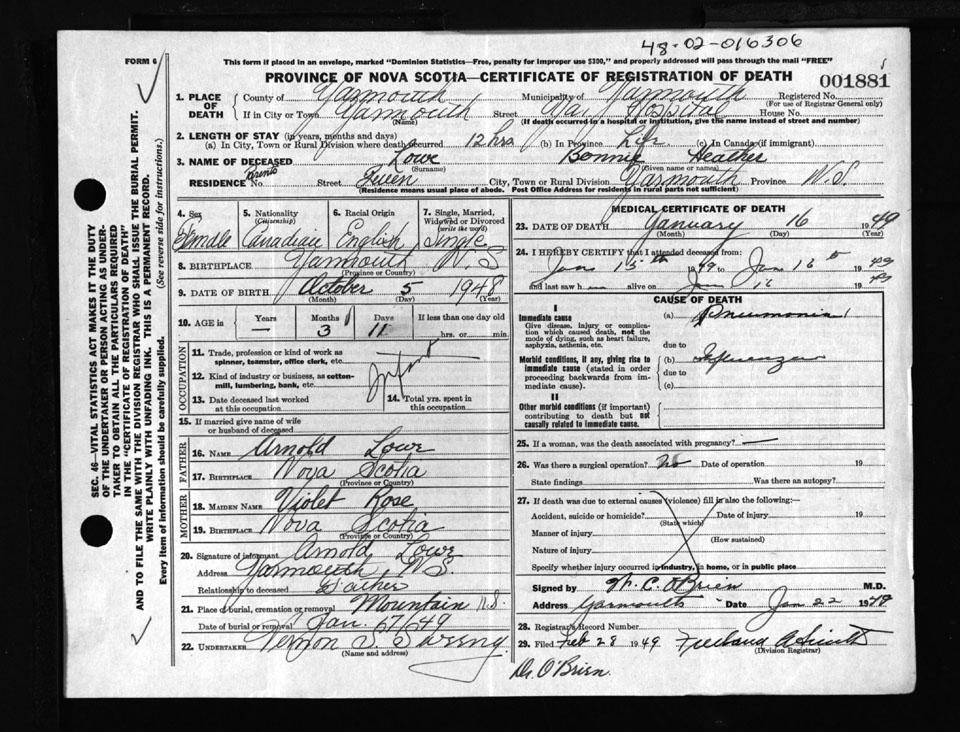 48-02-016306
FORM 6
This form if placed in an envelope, marked "Dominion Statistics—Free, penalty for improper use $300," and properly addressed will pass through the mail "FREE"
PROVINCE OF NOVA SCOTIA—CERTIFICATE OF REGISTRATION OF DEATH 001881
1. PLACE OF DEATH County of Yarmouth Municipality of Yarmouth Registered No.
(For use of Registrar General only)
If in City or Town Yarmouth Street Yar. Hospital House No.
(Name) (If death occurred in a hospital or institution, give the name instead of street and number)
2. LENGTH OF STAY (in years, months and days)
(a) In City, Town or Rural Division where death occurred 12 hrs (b) In Province Life (c) In Canada (if immigrant)
3. NAME OF DECEASED Lowe Bonnie Heather
(Surname) (Given name or names)
RESIDENCE No. Street Queen City, Town or Rural Division Yarmouth Province N.S.
(Residence means usual place of abode. Post Office Address for residents in rural parts not sufficient)
4. Sex Female
5. Nationality (Citizenship) Canadian
6. Racial Origin English
7. Single, Married, Widowed or Divorced (write the word) Single
8. BIRTHPLACE Yarmouth N.S
(Province or Country)
9. DATE OF BIRTH October 5 1948
(Month) (Day) (Year)
10. AGE in Years — Months 3 Days 11 If less than one day old
hrs. or min.
OCCUPATION
11. Trade, profession or kind of work as spinner, teamster, office clerk, etc.
12. Kind of industry or business, as cotton-mill, lumbering, bank, etc. Infant
13. Date deceased last worked at this occupation
14. Total yrs. spent in this occupation
15. If married give name of wife or husband of deceased
FATHER
16. NAME Arnold Lowe
17. BIRTHPLACE Nova Scotia
(Province or Country)
MOTHER
18. MAIDEN NAME Violet Rose
19. BIRTHPLACE Nova Scotia
(Province or Country)
20. Signature of informant Arnold Lowe
Address Yarmouth N.S.
Relationship to deceased Father
21. Place of burial, cremation or removal Mountain N.S.
Date of burial or removal Jan.
22. UNDERTAKER Vernon S. Sweeny
(Name and address)
MEDICAL CERTIFICATE OF DEATH
23. DATE OF DEATH January 16 1949
(Month) (Day) (Year)
24. I HEREBY CERTIFY that I attended deceased from:
Jan 15th 1949 to Jan 16th 1949
and last saw h alive on Jan 16 1949
CAUSE OF DEATH
I
Immediate cause
Give disease, injury or complication which caused death, not the mode of dying, such as heart failure, asphyxia, asthenia, etc.
(a) Pneumonia
due to
Morbid conditions, if any, giving rise to immediate cause (stated in order proceeding backwards from immediate cause).
(b) Influenza
due to
(c)
II
Other morbid conditions (if important) contributing to death but not causally related to immediate cause.
25. If a woman, was the death associated with pregnancy? —
26. Was there a surgical operation? no Date of operation 19
State findings Was there an autopsy?
27. If death was due to external causes (violence) fill in also the following:
Accident, suicide or homicide? Date of injury 19
(State which)
Manner of injury
(How sustained)
Nature of injury
Specify whether injury occurred in industry, in home, or in public place
Signed by W. C. O'Brien M.D.
Address Yarmouth Date Jan 22 1949
28. Registrar's Record Number
29. Filed Feb 28 1949
(Division Registrar)
Dr. O'Brien.
SEC. 46—VITAL STATISTICS ACT MAKES IT THE DUTY
OF THE UNDERTAKER OR PERSON ACTING AS UNDER-
TAKER TO OBTAIN ALL THE PARTICULARS REQUIRED
IN THE "CERTIFICATE OF REGISTRATION OF DEATH"
AND TO FILE THE SAME WITH THE DIVISION REGISTRAR WHO SHALL ISSUE THE BURIAL PERMIT.
WRITE PLAINLY WITH UNFADING INK. THIS IS A PERMANENT RECORD.
Every item of information should be carefully supplied. (See reverse side for instructions.)